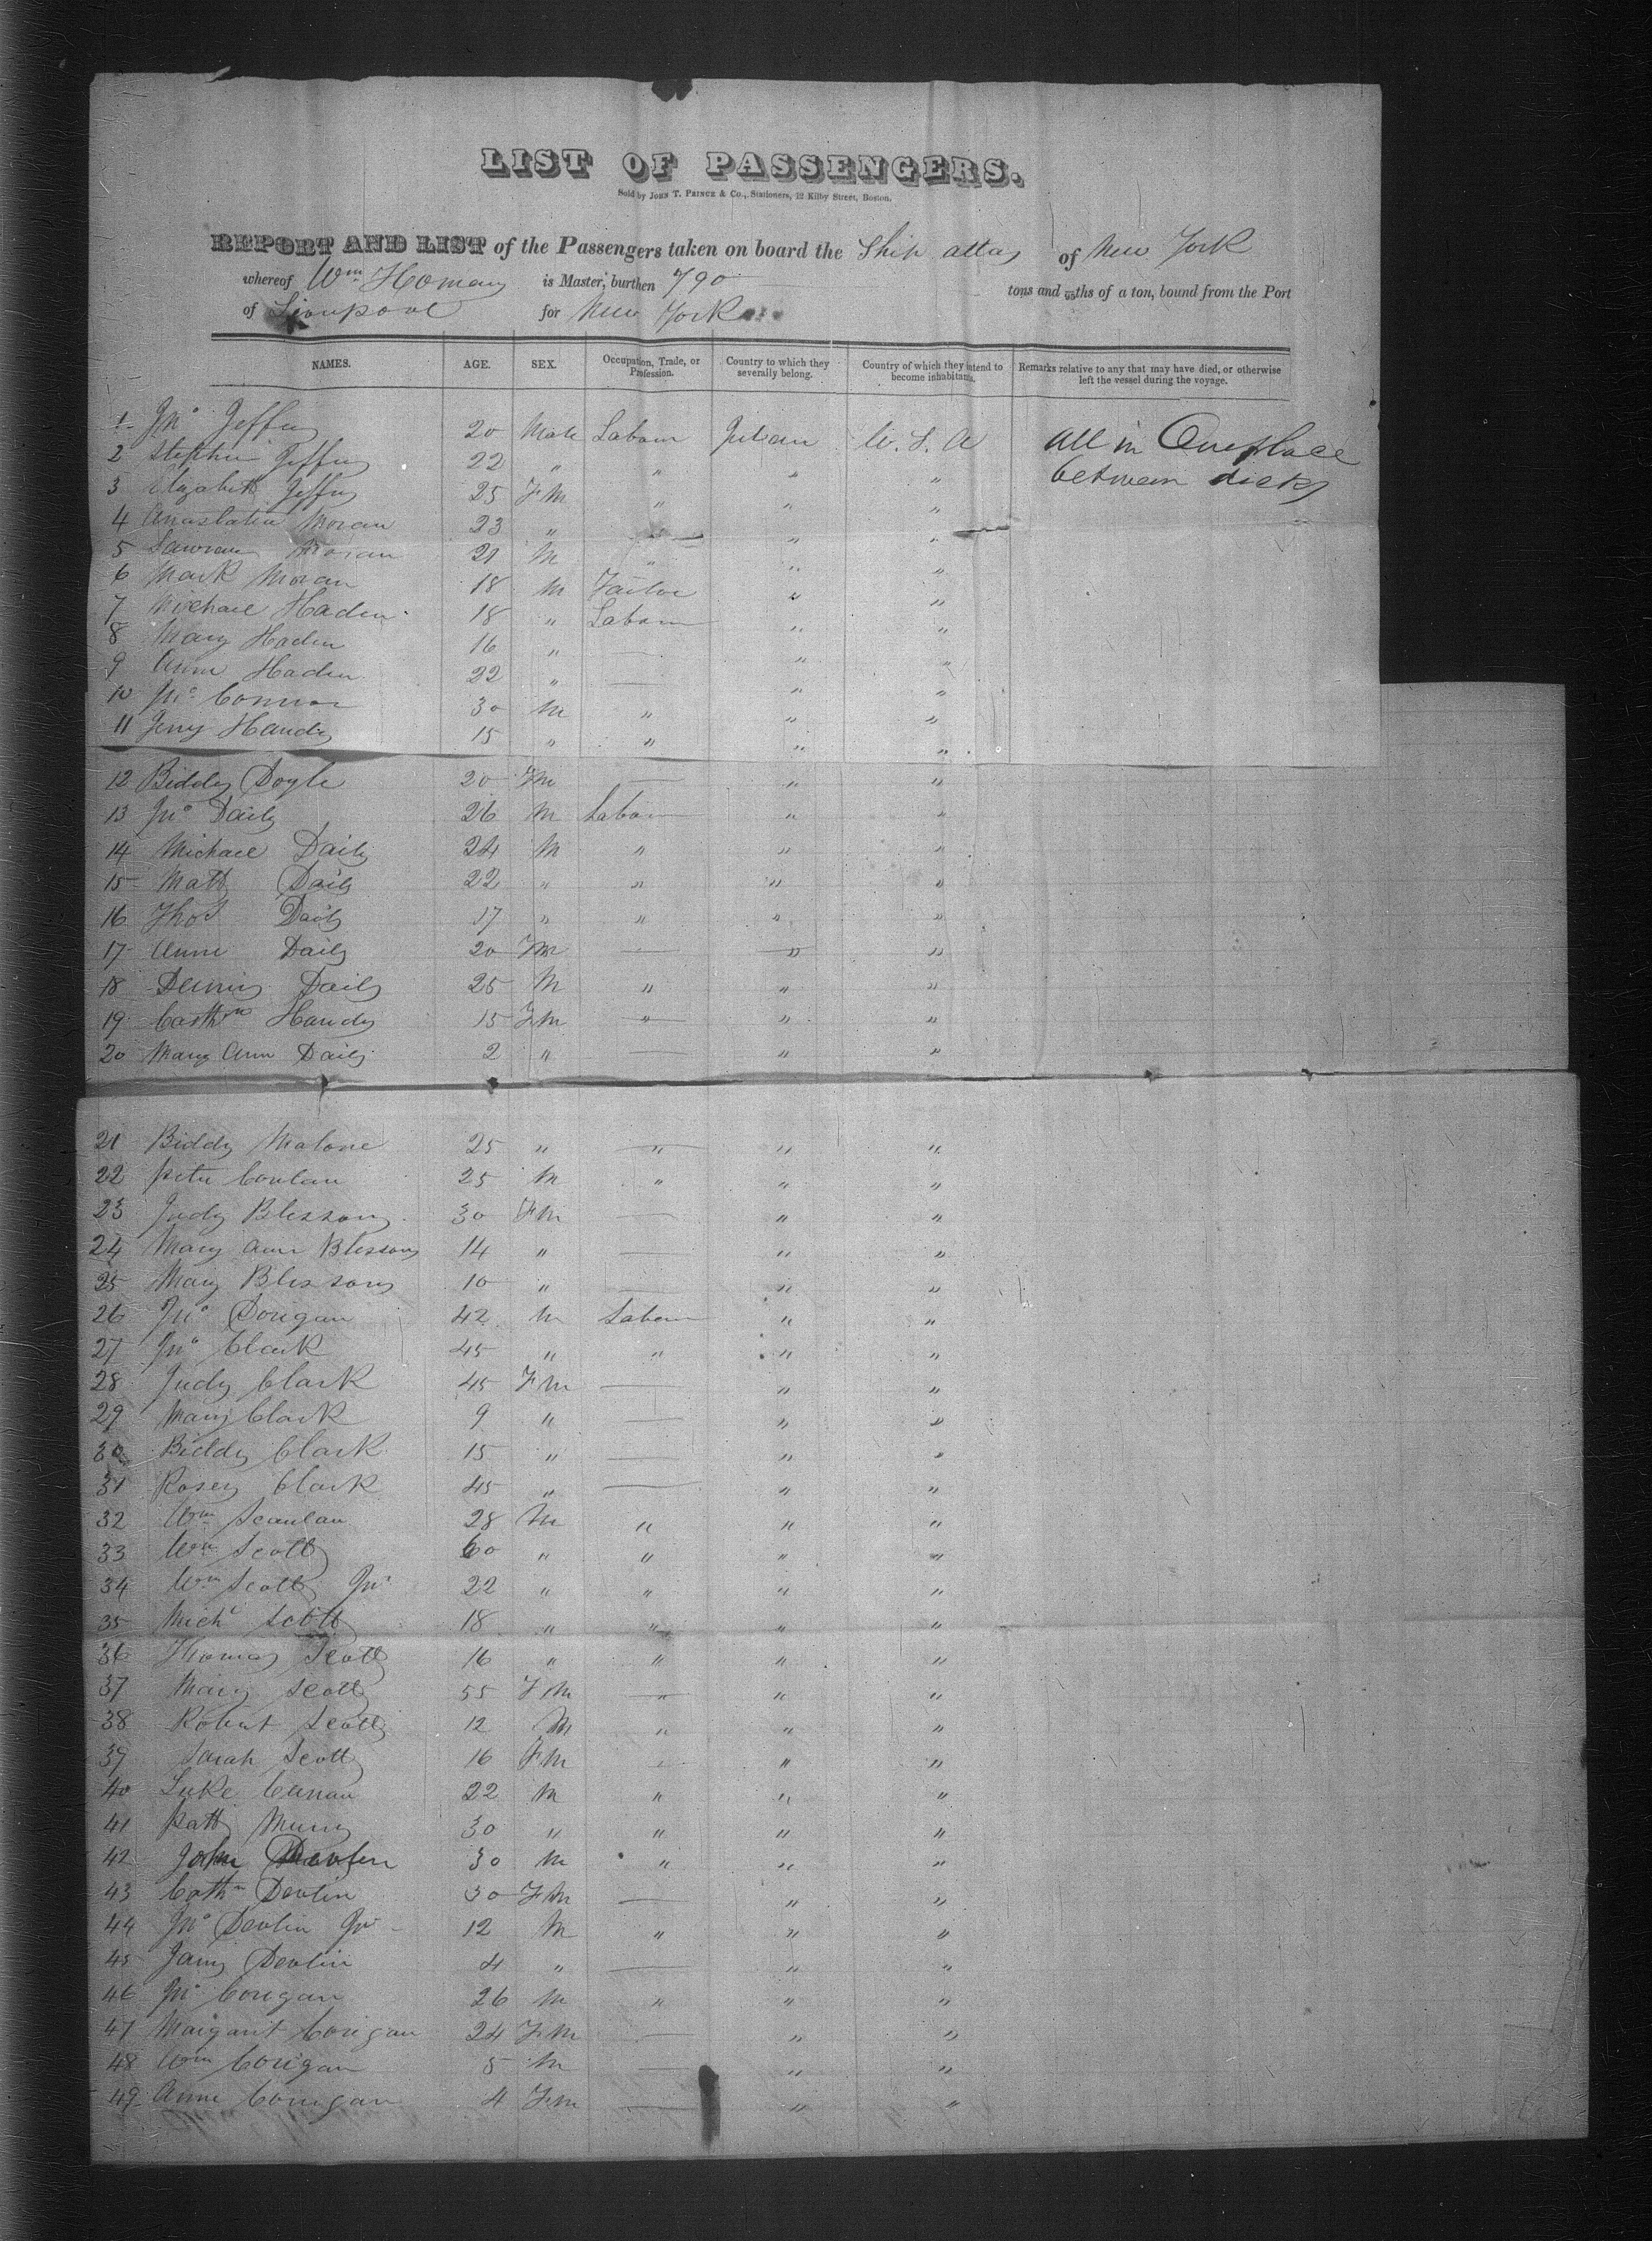 LIST OF PASSENGERS.
Sold by JOHN T. PRINCE & Co., Stationers, 12 Kilby Street, Boston.
REPORT AND LIST of the Passengers taken on board the Ship Atlas of New York
whereof Wm Homan is Master, burthen 790 tons and 95ths of a ton, bound from the Port
of Liverpool for New York
NAMES. AGE. SEX. Occupation, Trade, or Profession. Country to which they severally belong. Country of which they intend to become inhabitants. Remarks relative to any that may have died, or otherwise left the vessel during the voyage.
1 Jno Jeffrey 20 Male Labour U. S. A All in One place
2 Stephen Jeffrey 22 " " " " between decks
3 Elizabeth Jeffrey 25 Fm " " "
4 Anastatia Moran 23 " " " "
5 Lawrence Moran 21 M " " "
6 Mark Moran 18 M Tailor " "
7 Michael Haden 18 " Labour " "
8 Mary Haden 16 " — " "
9 Anne Haden 22 " — " "
10 Jno Connor 30 M " " "
11 Jeny Handy 15 " " " "
12 Biddy Doyle 20 Fm — " "
13 Jno Daily 26 M Labour " "
14 Michael Daily 24 M " " "
15 Matt Daily 22 " " " "
16 Thos Daily 17 " " " "
17 Anne Daily 20 Fm — " "
18 Dennis Daily 25 M " " "
19 Cathn Handy 15 Fm " " "
20 Mary Ann Daily 2 " — " "
21 Biddy Malone 25 " " " "
22 Peter Conlan 25 M " " "
23 Judy Blessony 30 Fm — " "
24 Mary Ann Blessony 14 " — " "
25 Mary Blessony 10 " — " "
26 Jno Dorigan 42 M Labour " "
27 Jno Clark 45 " " " "
28 Judy Clark 45 Fm — " "
29 Mary Clark 9 " — " "
30 Biddy Clark 15 " — " "
31 Rosey Clark 45 " — " "
32 Wm Scanlan 28 M " " "
33 Wm Scott 60 " " " "
34 Wm Scott Jnr 22 " " " "
35 Michl Scott 18 " " " "
36 Thomas Scott 16 " " " "
37 Mary Scott 55 Fm " " "
38 Robert Scott 12 M " " "
39 Sarah Scott 16 Fm " " "
40 Luke 22 M " " "
41 Patt Murry 30 " " " "
42 John Devlin 30 M " " "
43 Cathn Devlin 30 Fm — " "
44 Jno Devlin Jnr 12 M " " "
45 Jams Devlin 4 " — " "
46 Jno Corigan 26 M " " "
47 Margaret Corigan 24 Fm — " "
48 Wm Corigan 5 M — " "
49 Anne Corrigan 4 Fm — " "